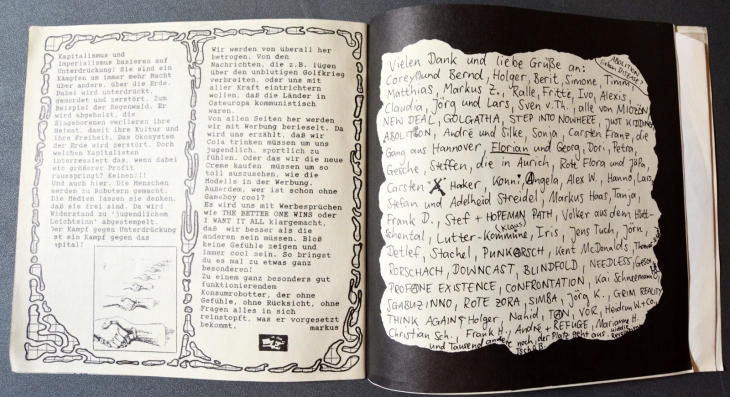 Kapitalismus und
Imperialismus basieren auf
Unterdrückung! Sie sind ein
Kämpfen um immer mehr Macht
über andere, über die Erde.
Dabei wird unterdrückt,
gemordet und zerstört. Zum
Beispiel der Regenwald. Er
wird abgeholzt, die
Eingeborenen verlieren ihre
Heimat, damit ihre Kultur und
ihre Freiheit. Das Ökosystem
der Erde wird zerstört. Doch
welchen Kapitalisten
interressiert das, wenn dabei
ein größerer Profit
rausspringt? Keinen!!!
Und auch hier. Die Menschen
werden zu Robotern gemacht.
Die Medien lassen sie denken,
daß sie frei sind. Da wird
Widerstand zu "jugendlichem
Leichtsinn" abgestempelt.
Der Kampf gegen Unterdrückung
ist ein Kampf gegen das
Kapital!
Wir werden von überall her
betrogen. Von den
Nachrichten, die z.B. lügen
über den unblutigen Golfkrieg
verbreiten, oder uns mit
aller Kraft eintrichtern
wollen, daß die Länder in
Osteuropa kommunistisch
waren.
Von allen Seiten her werden
wir mit Werbung berieselt. Da
wird uns erzählt, daß wir
Cola trinken müssen um uns
jugendlich, sportlich zu
fühlen. Oder das wir die neue
Creme kaufen müssen um so
toll auszusehen, wie die
Modells in der Werbung.
Außerdem, wer ist schon ohne
Gameboy cool?
Es wird uns mit Werbesprüchen
wie THE BETTER ONE WINS oder
I WANT IT ALL klargemacht,
daß wir besser als die
anderen sein müssen. Bloß
keine Gefühle zeigen und
immer cool sein. So bringst
du es mal zu etwas ganz
besonderen!
Zu einem ganz besonders gut
funktionierendem
Konsumrobotter, der ohne
Gefühle, ohne Rücksicht, ohne
Fragen alles in sich
reinstopft, was er vorgesetzt
bekommt. markus
Vielen Dank und liebe Grüße an:
Corey und Bernd, Holger, Berit, Simone, Timm,
Matthias, Markus Z., Ralle, Fritte, Ivo, Alexis,
Claudia, Jörg und Lars, Sven v. Th., alle von MIOZÄN,
NEW DEAL, GOLGATHA, STEP INTO NOWHERE, JUST KIDDING,
ABOLITION, André und Silke, Sonja, Carsten Franz, die
Gang aus Hannover, Florian und Georg, Dori, Petra,
Gesche, Steffen, die in Aurich, Rote Flora und
Carsten Haker, Konni, Angela, Alex W., Hanno, Lars,
Stefan und Adelheid Streidel, Markus Haas, Tanja,
Frank D., Stef + HOPEMAN PATH, Volker aus dem Hütt-
schental, Lutter-Kommune, Iris, Jens Tuch, Jörn,
(Klaus)
Detlef, Stachel, PUNKARSCH, Kent McDonalds,
RORSCHACH, DOWNCAST, BLINDFOLD, NEEDLESS,
PROFANE EXISTENCE, CONFRONTATION, Kai
SGABUZINNO, ROTE ZORA, SIMBA, Jörg K., GRIM REALITY
THINK AGAIN, Holger, Nahid, TON, VOR, Heidrun W. + Co,
Christian Sch., Frank H., André + REFUGE, Marianne H.
und Tausend andere noch, der Platz geht aus